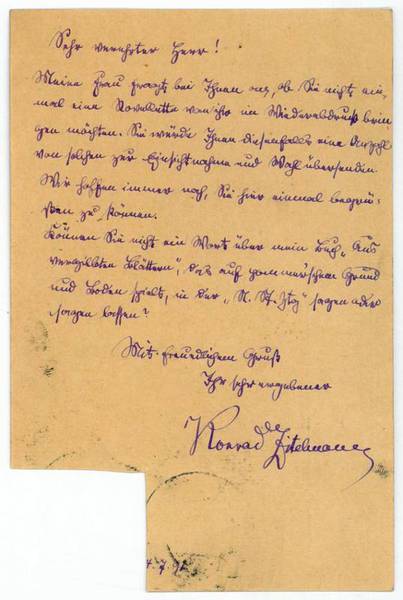 Sehr verehrter Herr!
Meine Frau fragt bei Ihnen an, ob Sie nicht ein-
mal eine Novellette von ihr im Wiederabdruck brin-
gen möchten. Sie würde Ihnen diesenfalls eine Anzahl
von solchen zur Einsichtnahme und Wahl übersenden.
Wir hoffen immer noch, Sie hier einmal begrü-
ßen zu können.
Können Sie nicht ein Wort über mein Buch „Aus
vergilbten Blättern", das auf pommer'schem Grund
und Boden spielt, in der „N. St. Ztg" sagen oder
sagen lassen?
Mit freundlichem Gruß
Ihr sehr ergebener
Konrad Zitelmann
7. 91